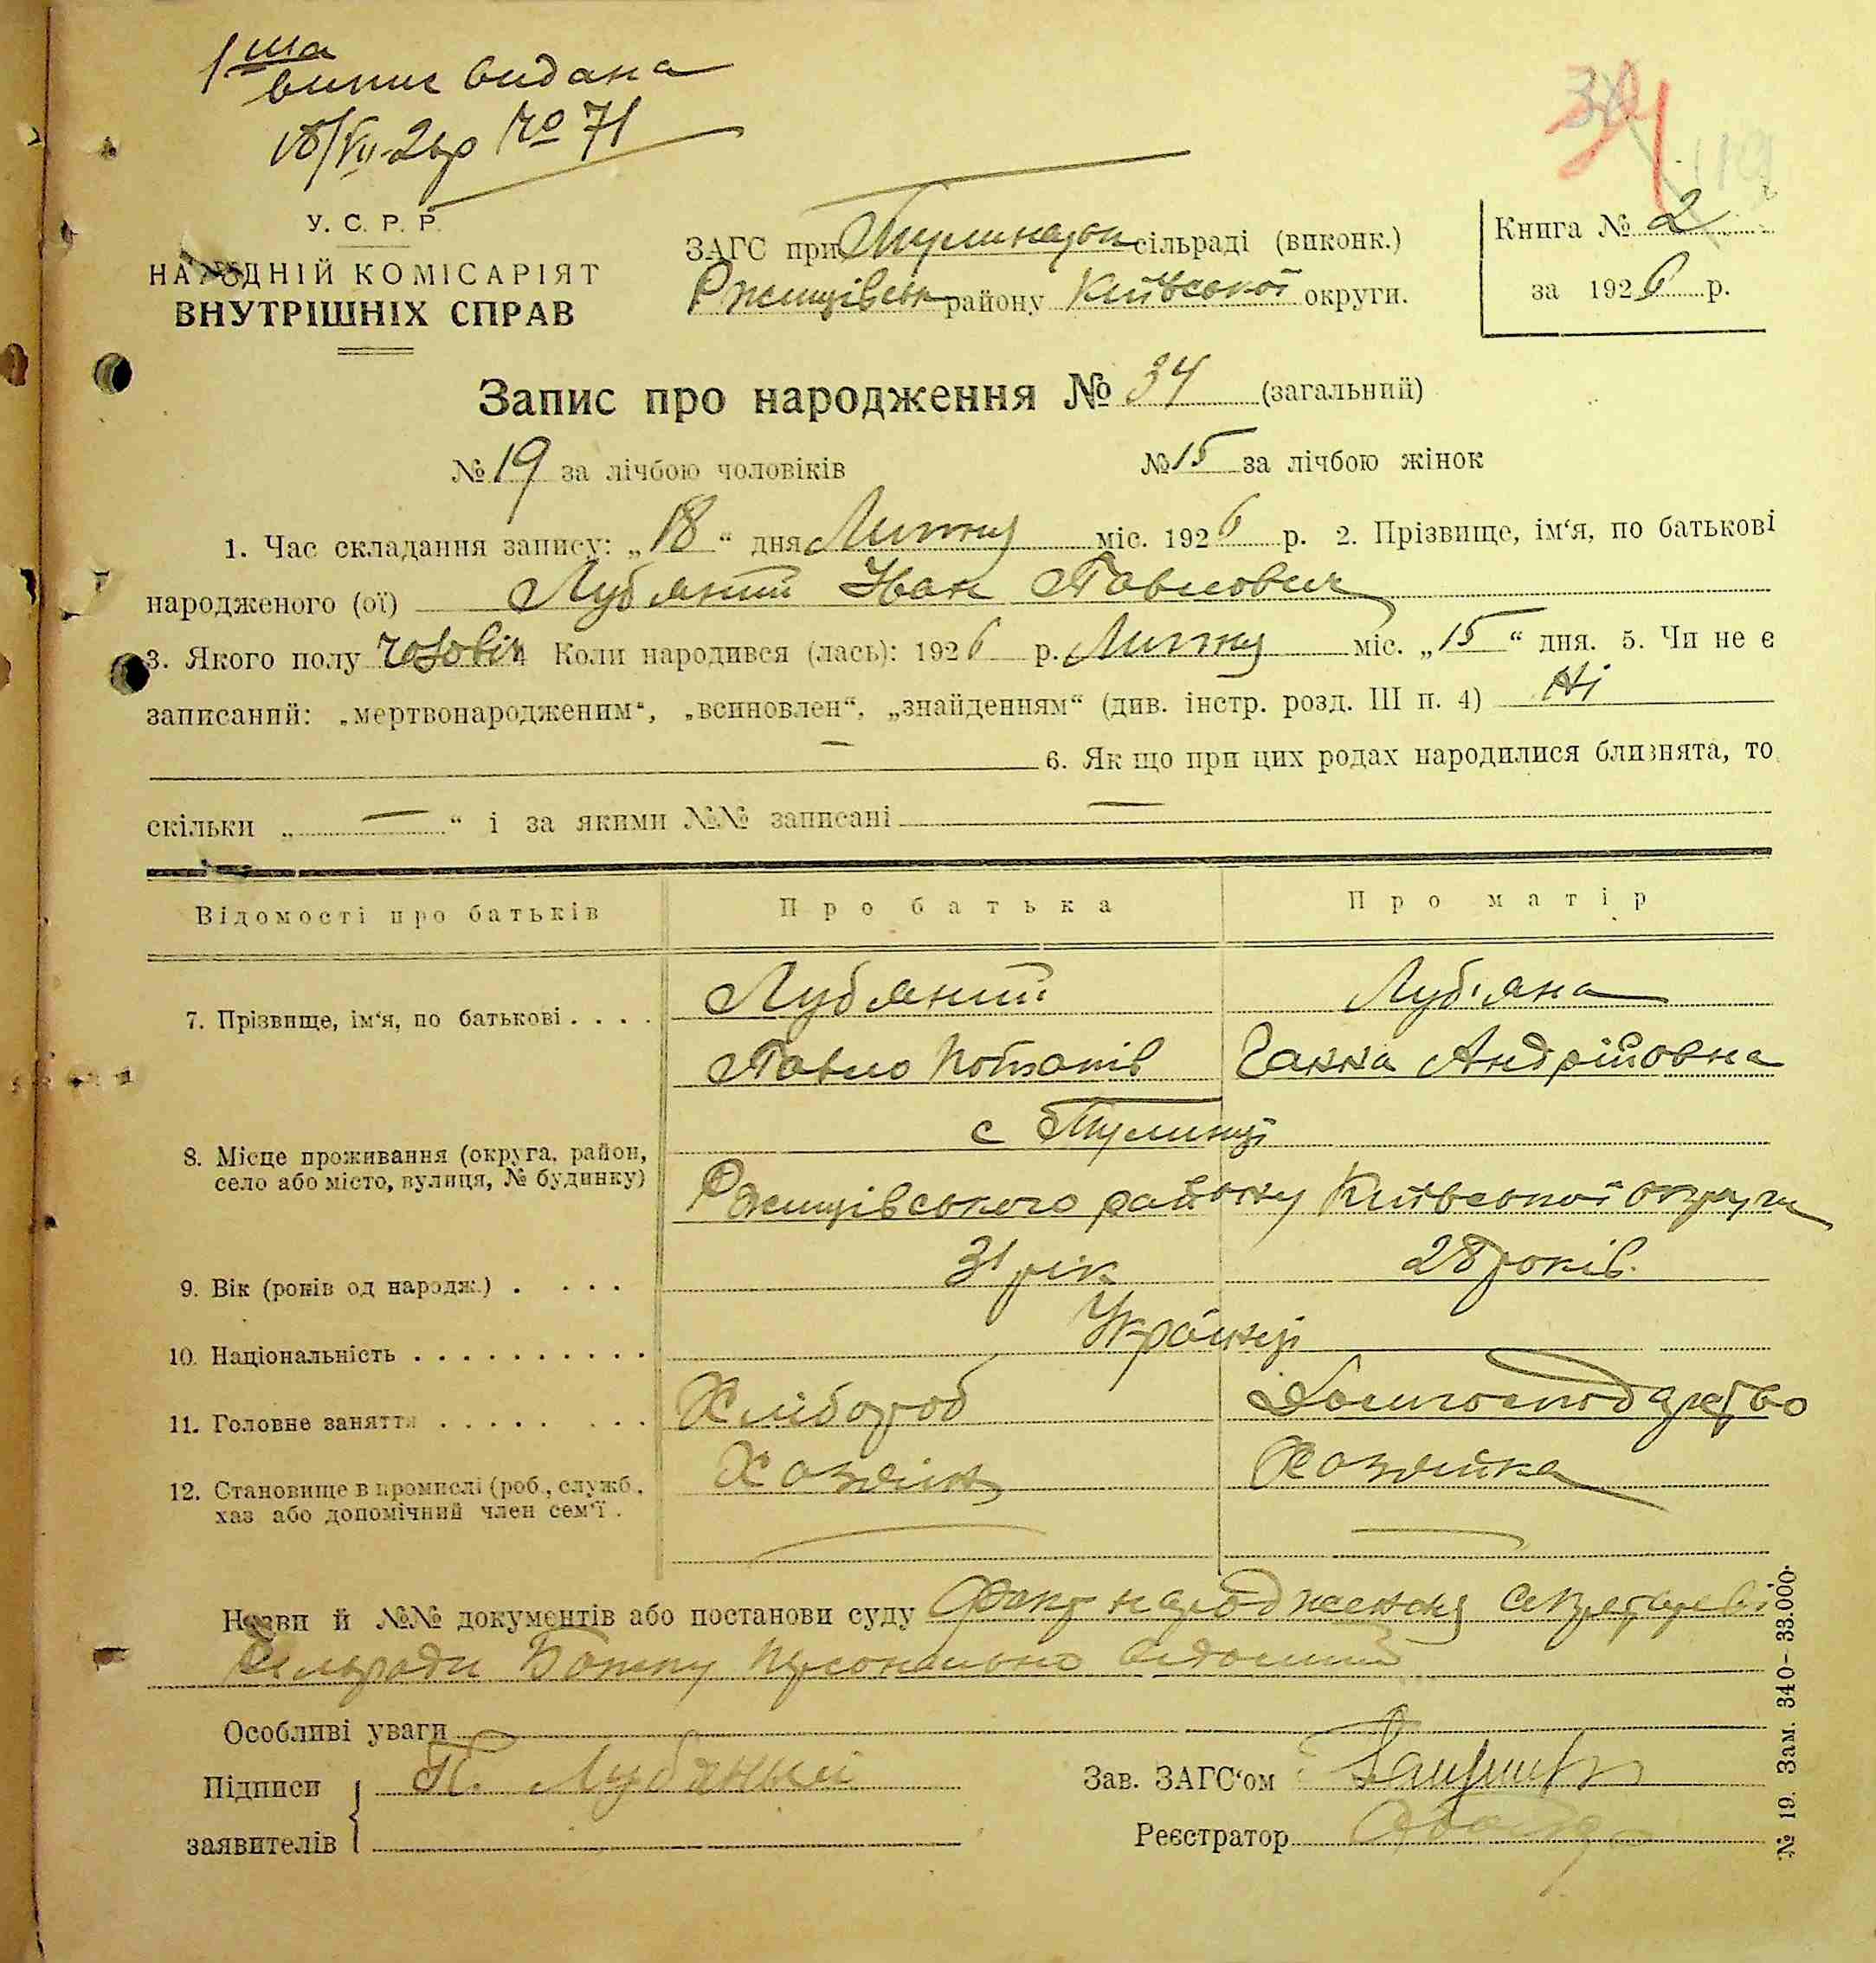 1ша
випис видана
18/VII-26р № 71
У. С. Р. Р.
НАРОДНІЙ КОМІСАРІЯТ
ВНУТРІШНІХ СПРАВ
ЗАГС при сільраді (виконк.)
Ржищівськ району Київської округи.
Книга № 2
за 1926 р.
Запис про народження № 34 (загальний)
№ 19 за лічбою чоловіків № 15 за лічбою жінок
1. Час складання запису: „18“ дня Лютня міс. 1926 р. 2. Прізвище, ім‘я, по батькові
народженого (ої) Лубяний Іван Павлович
3. Якого полу чоловіч Коли народився (лась): 1926 р. Лютня міс. „15“ дня. 5. Чи не є
записаний: „мертвонародженим“, „всиновлен“, „знайденням“ (див. інстр. розд. III п. 4) Ні
— 6. Як що при цих родах народилися близнята, то
скільки „ — “ і за якими №№ записані —
Відомості про батьків Про батька Про матір
7. Прізвище, ім‘я, по батькові . . . . Лубяний Луб'яна
Павло Потапів Ганна Андрійовна
8. Місце проживання (округа, район,
село або місто, вулиця, № будинку)
с Тулинці
Ржищівського району Київської округи
9. Вік (років од народж.) . . . . 31 рік 28 років.
10. Національність . . . . . . . . . . Українці
11. Головне заняття . . . . . . . . Хлібороб Домгосподарство
12. Становище в промислі (роб., служб.,
хаз або допомічний член сем‘ї .
Хозяїн Хозяйка
Назви й №№ документів або постанови суду Факт народження секретареві
Сільради персонально відомий
Особливі уваги
Підписи
заявителів
П. Лубяный
Зав. ЗАГС‘ом
Реєстратор
№ 19. Зам. 340–33.000.